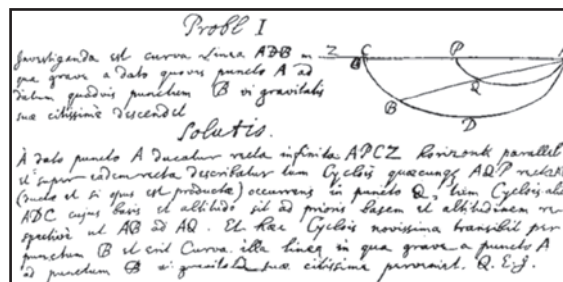 Probl I
Investiganda est curva Linea ADB in
qua grave a dato quovis puncto A ad
datum quodvis punctum B vi gravitatis
suæ citissimè descendet
Z C P A
B Q
D
Solutio.
A dato puncto A ducatur recta infinita APCZ horizonti parallela
et super eadem recta describatur tum Cyclois quæcunque AQP rectæ
(ducta et si opus est producta) occurrens in puncto Q, tum Cyclois alia
ADC cujus basis et altitudo sit ad prioris basem et altitudinem re-
spective ut AB ad AQ. Et hæc Cyclois novissima transibit per
punctum B et erit Curva illa linea in qua grave a puncto A
ad punctum B vi gravitatis suæ citissime perveniet. Q.E.I.